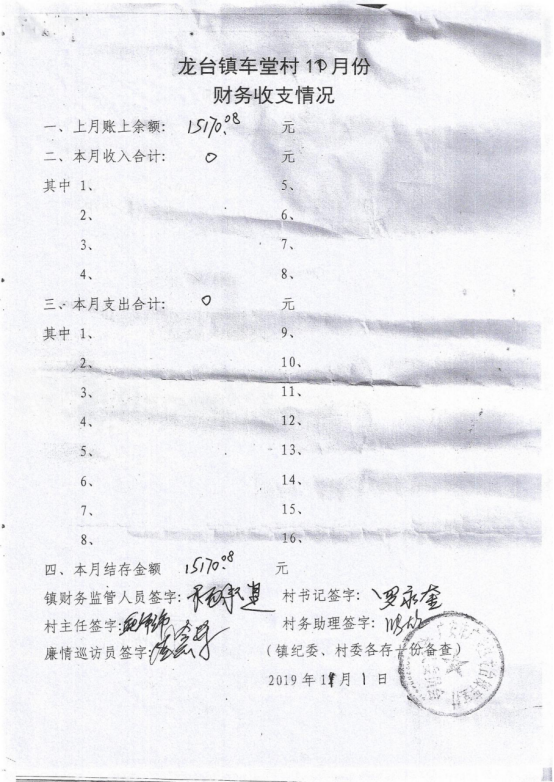 龙台镇车堂村10月份
财务收支情况
一、上月账上余额: 15170.08 元
二、本月收入合计: 0 元
其中 1、 5、
2、 6、
3、 7、
4、 8、
三、本月支出合计: 0 元
其中 1、 9、
2、 10、
3、 11、
4、 12、
5、 13、
6、 14、
7、 15、
8、 16、
四、本月结存金额 15170.08 元
镇财务监管人员签字: 村书记签字: 罗永奎
村主任签字: 村务助理签字:
廉情巡访员签字: (镇纪委、村委各存一份备查)
2019年11月1日